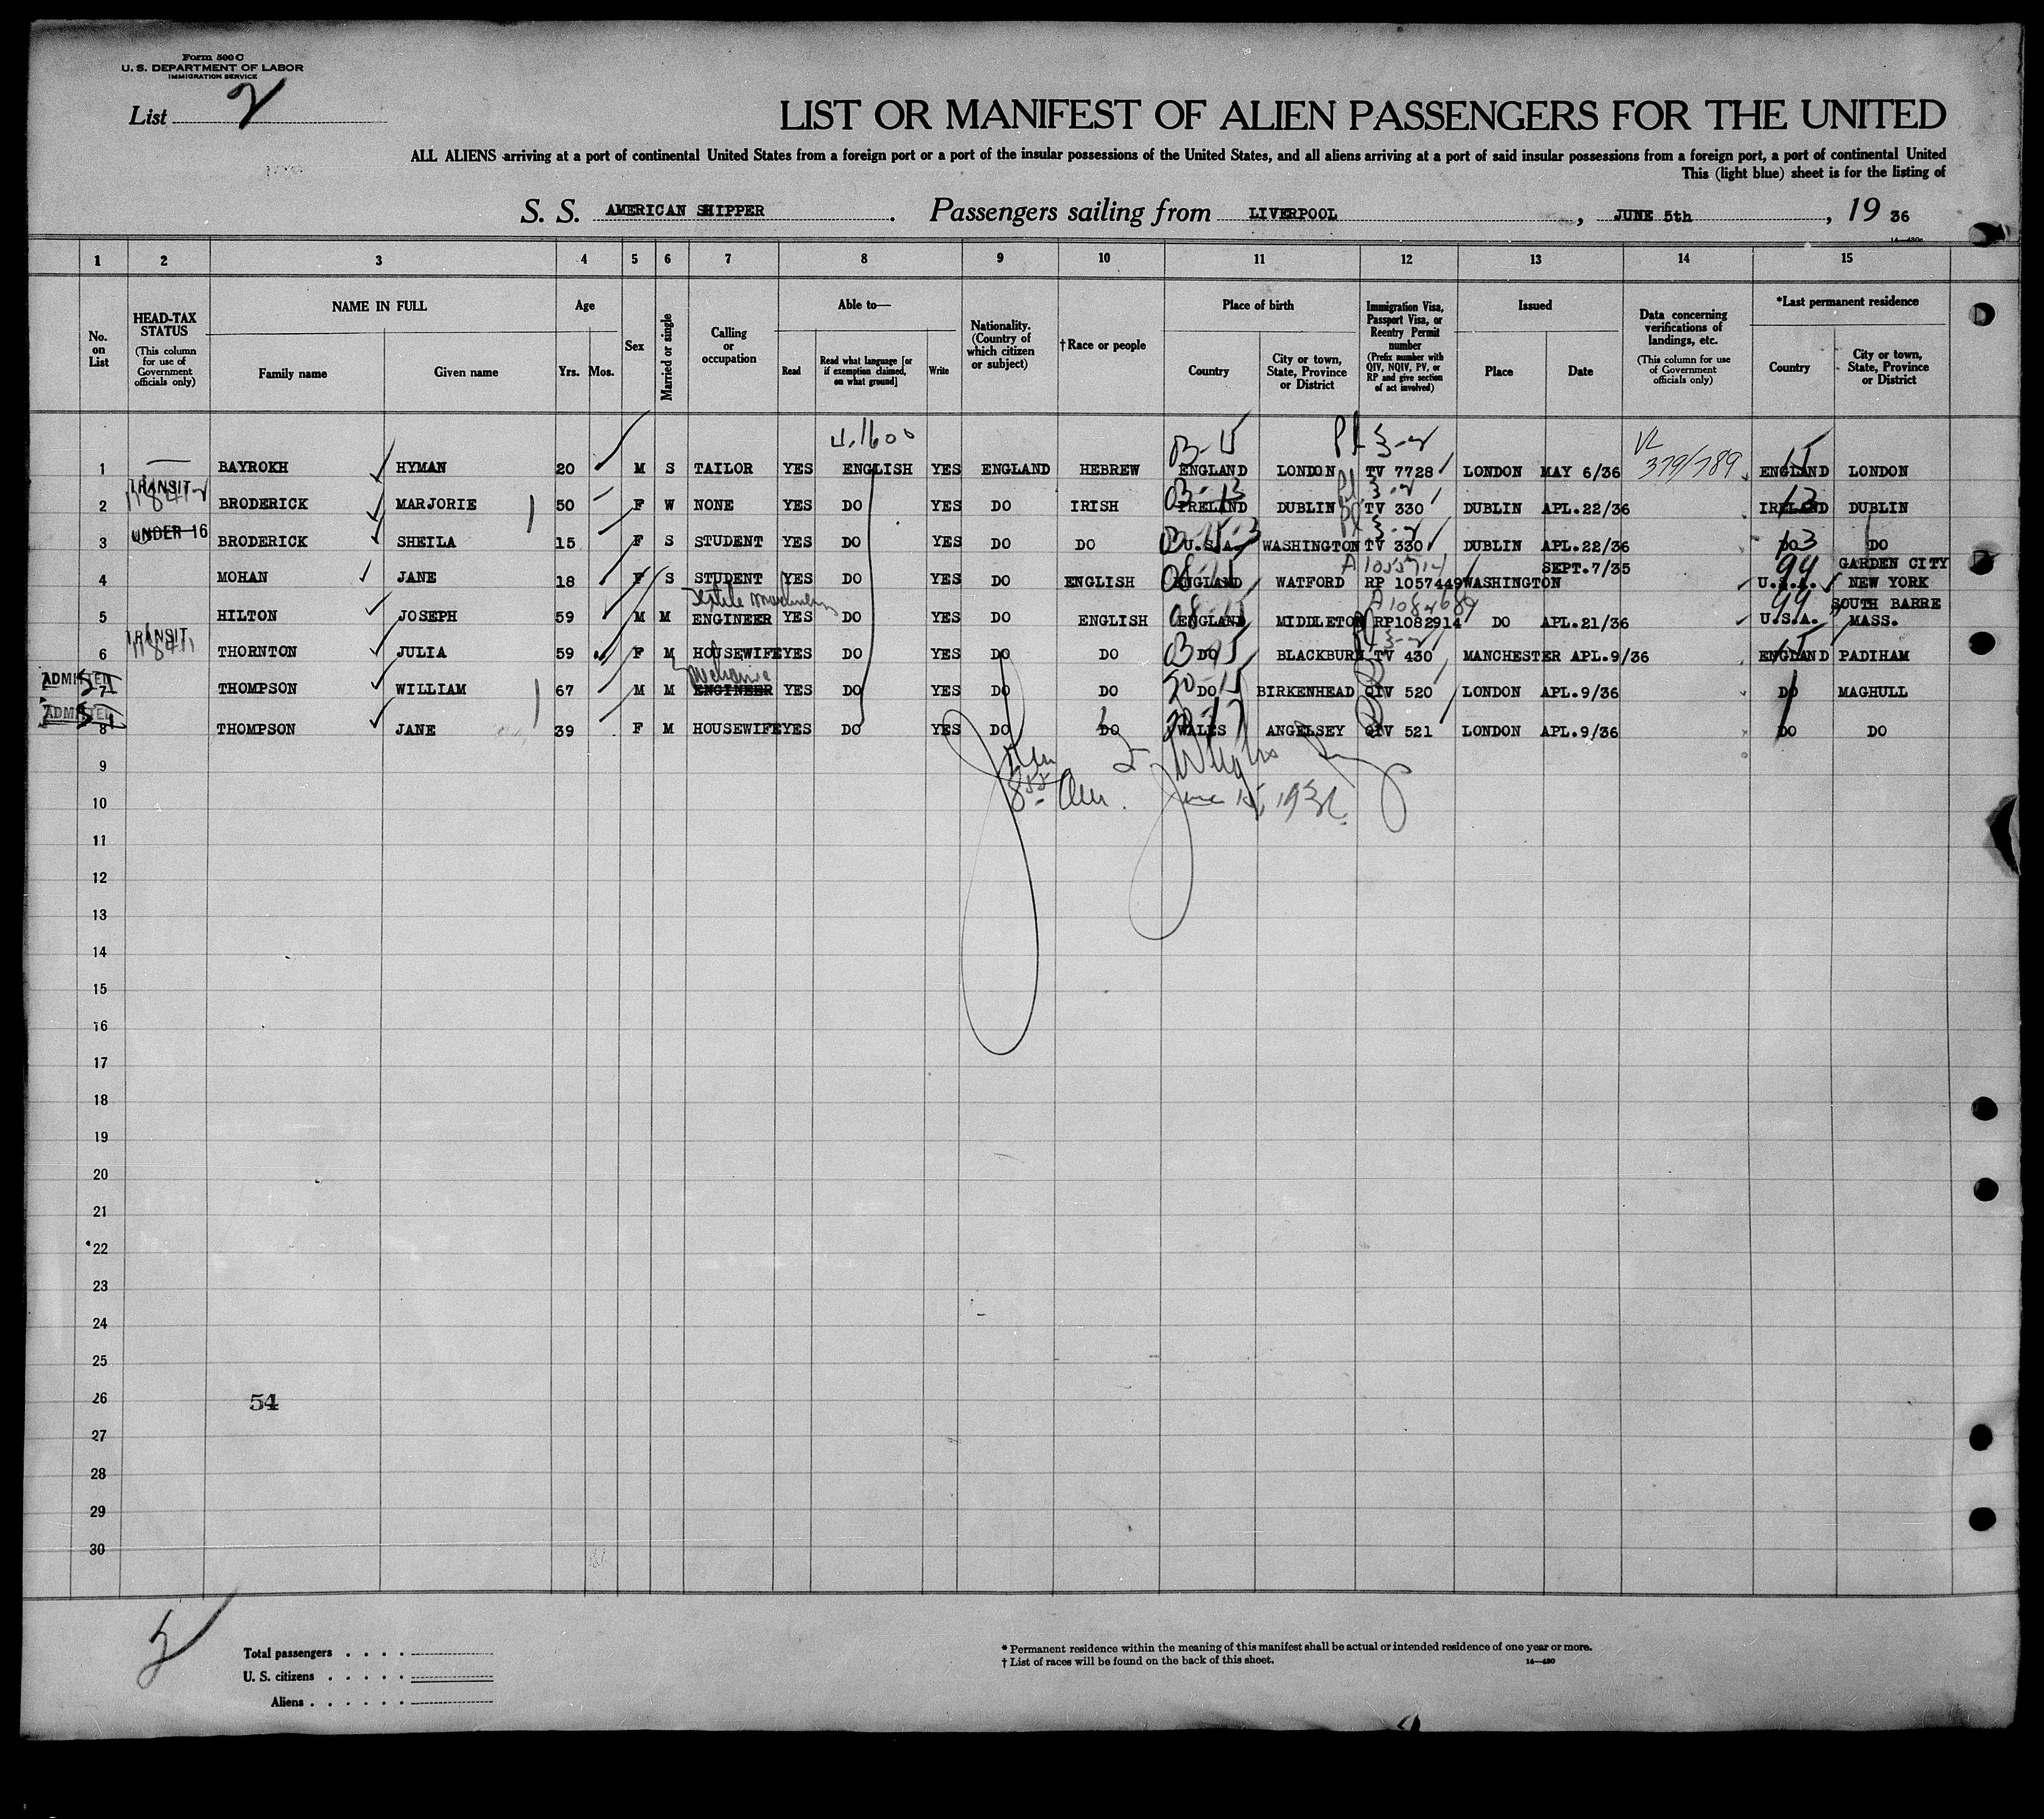 Form 500 C
U. S. DEPARTMENT OF LABOR
IMMIGRATION SERVICE
List 2
LIST OR MANIFEST OF ALIEN PASSENGERS FOR THE UNITED
ALL ALIENS arriving at a port of continental United States from a foreign port or a port of the insular possessions of the United States, and all aliens arriving at a port of said insular possessions from a foreign port, a port of continental United
This (light blue) sheet is for the listing of
S. S. AMERICAN SHIPPER. Passengers sailing from LIVERPOOL, JUNE 5th, 19 36
1 2 3 4 5 6 7 8 9 10 11 12 13 14 15
No. on List
HEAD-TAX STATUS (This column for use of Government officials only)
NAME IN FULL
Family name Given name
Age
Yrs. Mos.
Sex
Married or single
Calling or occupation
Able to—
Read Read what language [or if exemption claimed, on what ground] Write
Nationality. (Country of which citizen or subject)
†Race or people
Place of birth
Country City or town, State, Province or District
Immigration Visa, Passport Visa, or Reentry Permit number (Prefix number with QIV, NQIV, PV, or RP and give section of act involved)
Issued
Place Date
Data concerning verifications of landings, etc. (This column for use of Government officials only)
*Last permanent residence
Country City or town, State, Province or District
03-15 3-2
1 BAYROKH HYMAN 20 M S TAILOR YES ENGLISH YES ENGLAND HEBREW ENGLAND LONDON TV 7728 LONDON MAY 6/36 379/789 ENGLAND LONDON
TRANSIT
2 BRODERICK MARJORIE 50 F W NONE YES DO YES DO IRISH IRELAND DUBLIN TV 330 DUBLIN APL.22/36 IRELAND DUBLIN
UNDER 16
3 BRODERICK SHEILA 15 F S STUDENT YES DO YES DO DO U.S.A. WASHINGTON TV 330 DUBLIN APL.22/36 DO DO
4 MOHAN JANE 18 F S STUDENT YES DO YES DO ENGLISH ENGLAND WATFORD RP 1057449 WASHINGTON SEPT.7/35 U.S.A. GARDEN CITY NEW YORK
5 HILTON JOSEPH 59 M M ENGINEER YES DO YES DO ENGLISH ENGLAND MIDDLETON RP1082914 DO APL.21/36 U.S.A. SOUTH BARRE MASS.
TRANSIT
6 THORNTON JULIA 59 F M HOUSEWIFE YES DO YES DO DO DO BLACKBURN TV 430 MANCHESTER APL.9/36 ENGLAND PADIHAM
ADMITTED
Mechanic
7 THOMPSON WILLIAM 67 M M ENGINEER YES DO YES DO DO DO BIRKENHEAD QIV 520 LONDON APL.9/36 DO MAGHULL
ADMITTED
8 THOMPSON JANE 39 F M HOUSEWIFE YES DO YES DO DO WALES ANGELSEY QIV 521 LONDON APL.9/36 DO DO
9
10 June 15, 1936
11
12
13
14
15
16
17
18
19
20
21
22
23
24
25
26 54
27
28
29
30
Total passengers
U. S. citizens
Aliens
* Permanent residence within the meaning of this manifest shall be actual or intended residence of one year or more.
† List of races will be found on the back of this sheet.
14—430